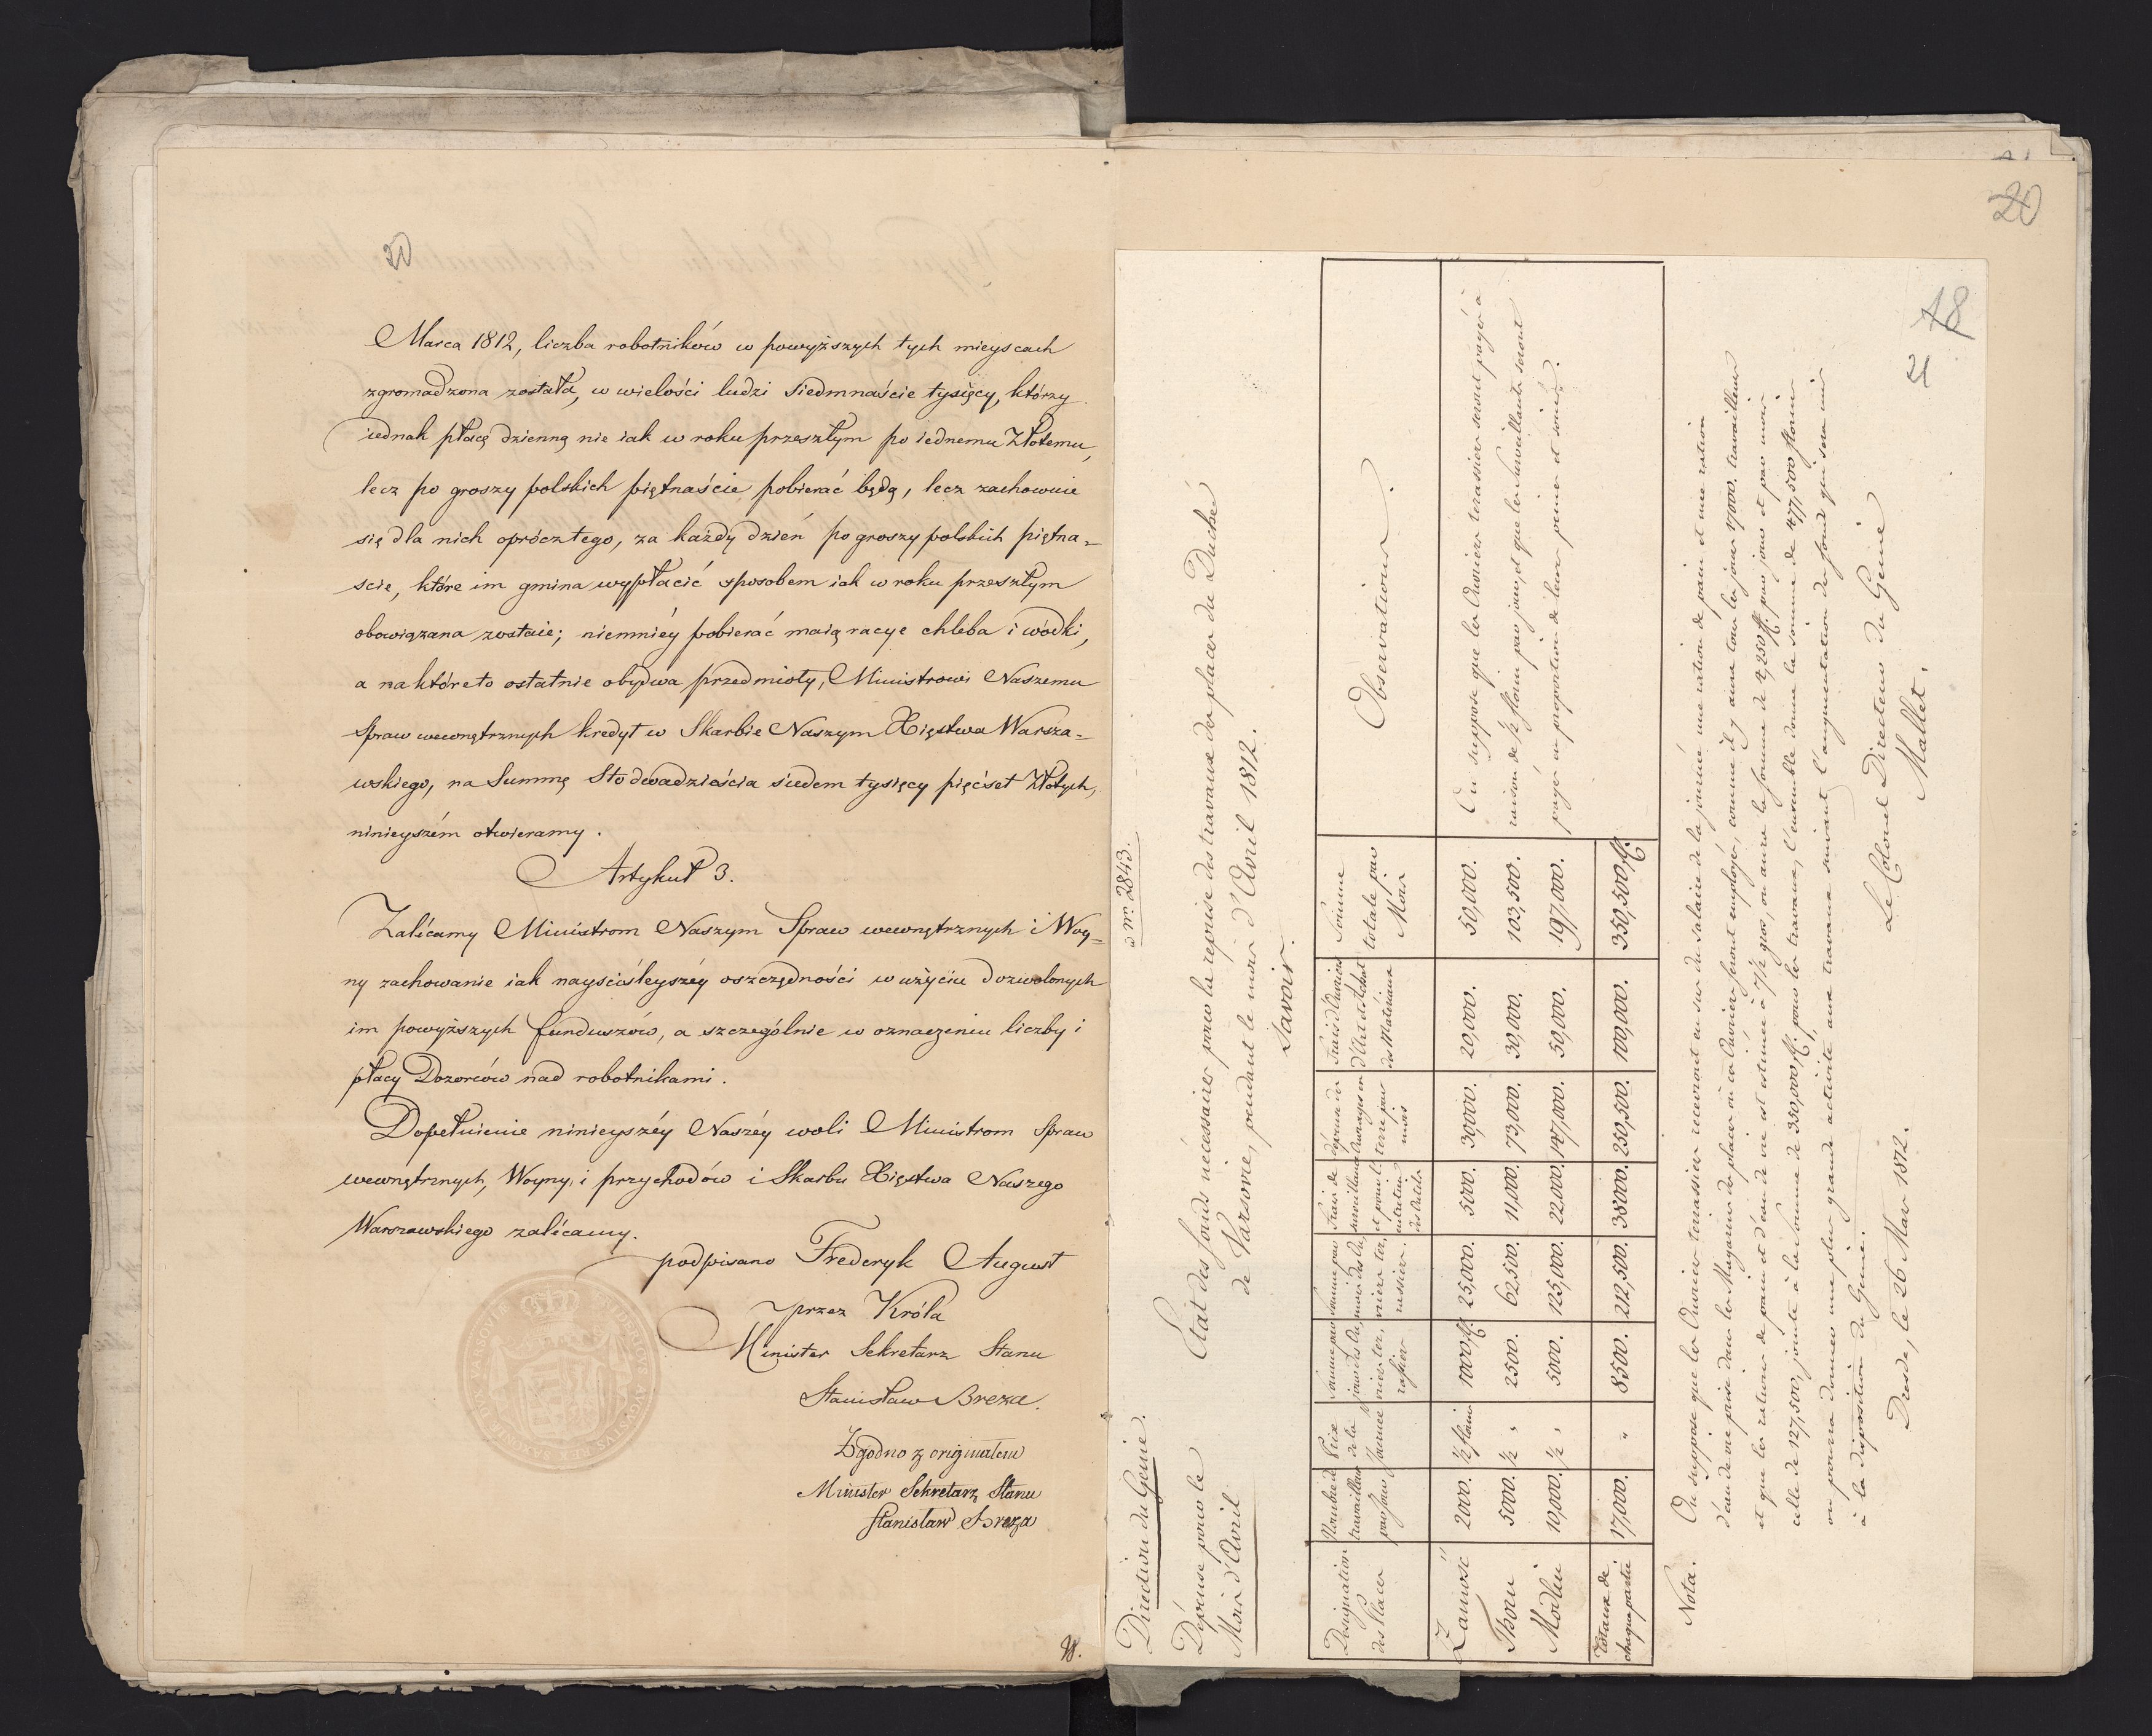 20
Marca 1812, liczba robotników w powyższych tych mieyscach
zgromadzona została, w wielości ludzi siedmnaście tysięcy, którzy
iednak płacę dzienną nie iak w roku przeszłym po iednemu Złotemu,
lecz po groszy polskich piętnaście pobierać będą, lecz zachowuie
się dla nich oprócz tego, za każdy dzień po groszy polskich piętna=
ście, które im gmina wypłacić sposobem iak w roku przeszłym
obowiązana zostaie; niemniéy pobierać maią racye chleba i wódki,
a na które to ostatnie obydwa przedmioty, Ministrowi Naszemu
Spraw wewnętrznych kredyt w Skarbie Naszym Xięstwa Warsza=
wskiego, na Summę Sto dwadzieścia siedem tysięcy pięćset Złotych,
ninieyszém otwieramy.
Artykuł 3.
Zalécamy Ministrom Naszym Spraw wewnętrznych i Woy=
ny zachowanie iak nayściśleyszéy oszczędności w użyciu dozwolonych
im powyższych funduszów, a szczególnie w oznaczeniu liczby i
płacy Dozorców nad robotnikami.
Dopełnienie ninieyszéy Naszéy woli Ministrom Spraw
wewnętrznych, Woyny, i przychodów i Skarbu Xięstwa Naszego
Warszawskiego zalécamy.
podpisano Frederyk August
przez Króla
Minister Sekretarz Stanu
Stanisław Breza.
Zgodno z originałem
Minister Sekretarz Stanu
Stanisław Breza
20
18
21
nr. 2843.
Direction du Génie.
Dépense pour le
Mois d'Avril
État des fonds nécessaires pour la reprise des travaux des places du Duché
de Varsovie, pendant le mois d'Avril 1812.
Savoir.
Designation des Places | Nombre de travailleurs par jour | Prix de la Journée | Somme par jour des Ouvriers ter, rassier | Somme par mois des Ouvriers ter, rassier. | Frais de surveillance et pour l'entretien des Outils | dépense des Ouvrages en terre par mois | Frais d'Ouvriers d'Art et Achat des Matériaux | Somme totale par Mois | Observations.
Zamość | 2000. | ½ florin | 1000 fl. | 25,000. | 5000. | 30,000. | 20,000. | 50,000.
Thorn | 5000. | ½ " | 2500. | 62,500. | 11,000. | 73,000. | 30,000. | 103,500.
Modlin | 10,000. | ½ " | 5000. | 125,000. | 22,000. | 147,000. | 50,000. | 197,000.
Totaux de chaque partie | 17,000. | " | 8500. | 212,500. | 38000. | 250,500. | 100,000. | 350,500 fl.
On suppose que les Ouvriers terassiers seront payés à
raison de ½ florin par jour, et que les surveillants seront
payés en proportion de leurs peines et soins.
Nota. On suppose que les Ouvriers terrassiers recevront en sus du salaire de la journée une ration de pain et une ration
d'eau de vie prise dans les Magasins des places où ces Ouvriers seront employés, comme il y aura tous les jours 17,000. travailleurs
et que les rations de pain et d'eau de vie est estimée à 7½ gros, on aura la somme de 4,250 fl. par jour et par mois
celle de 127,500, jointe à la Somme de 350,000 fl. pour les travaux, l'ensemble donne la somme de 477,500 florins
on pourra donner une plus grande activité aux travaux suivant l'augmentation des fonds qui sera mis
à la disposition du Génie.
Dresde, le 26 Mars 1812.
Le Colonel Directeur du Génie
Mallet.